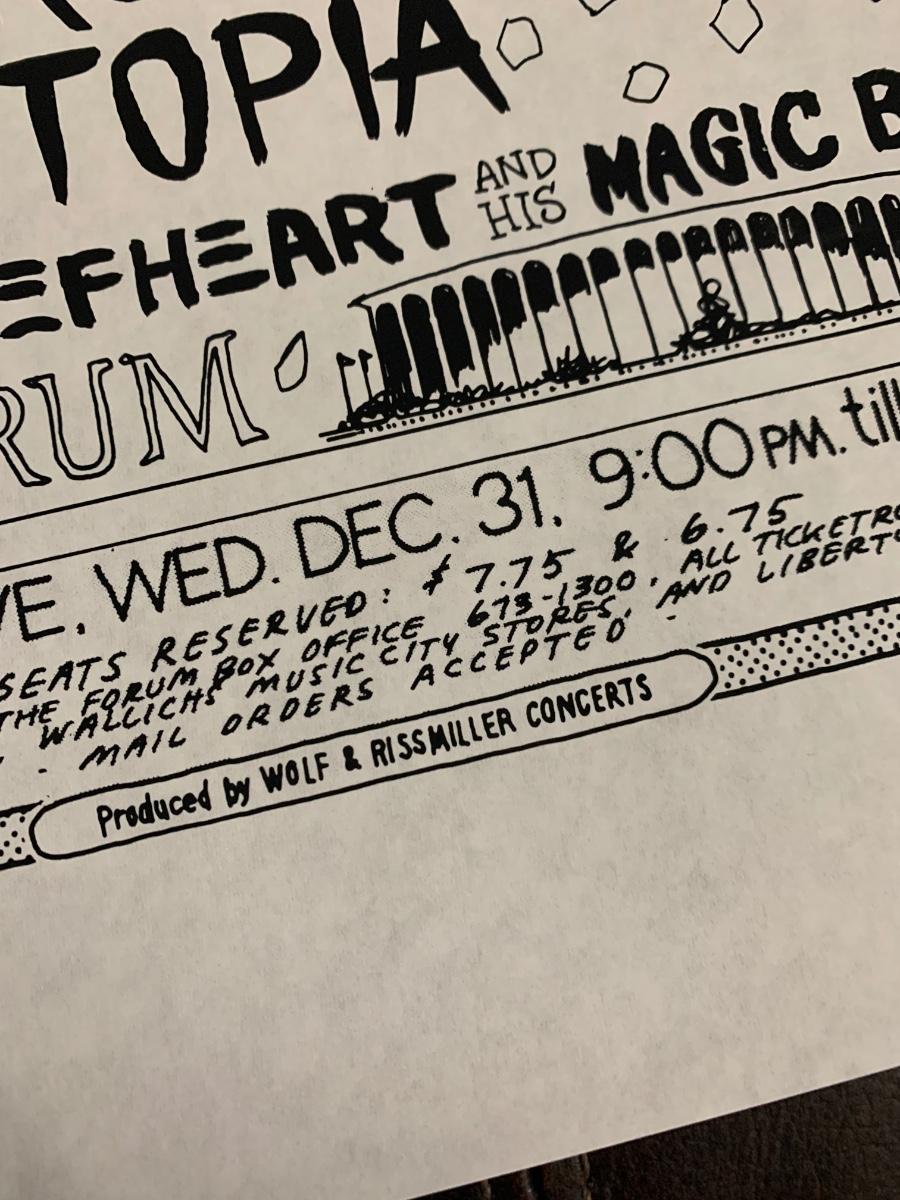 TOPIA
EFHEART AND HIS MAGIC B
RUM
VE, WED. DEC. 31, 9:00 PM. till
SEATS RESERVED: $7.75 & 6.75
THE FORUM BOX OFFICE 673-1300, ALL TICKETRO
WALLICHS MUSIC CITY STORES, AND LIBERT
- MAIL ORDERS ACCEPTED -
Produced by WOLF & RISSMILLER CONCERTS